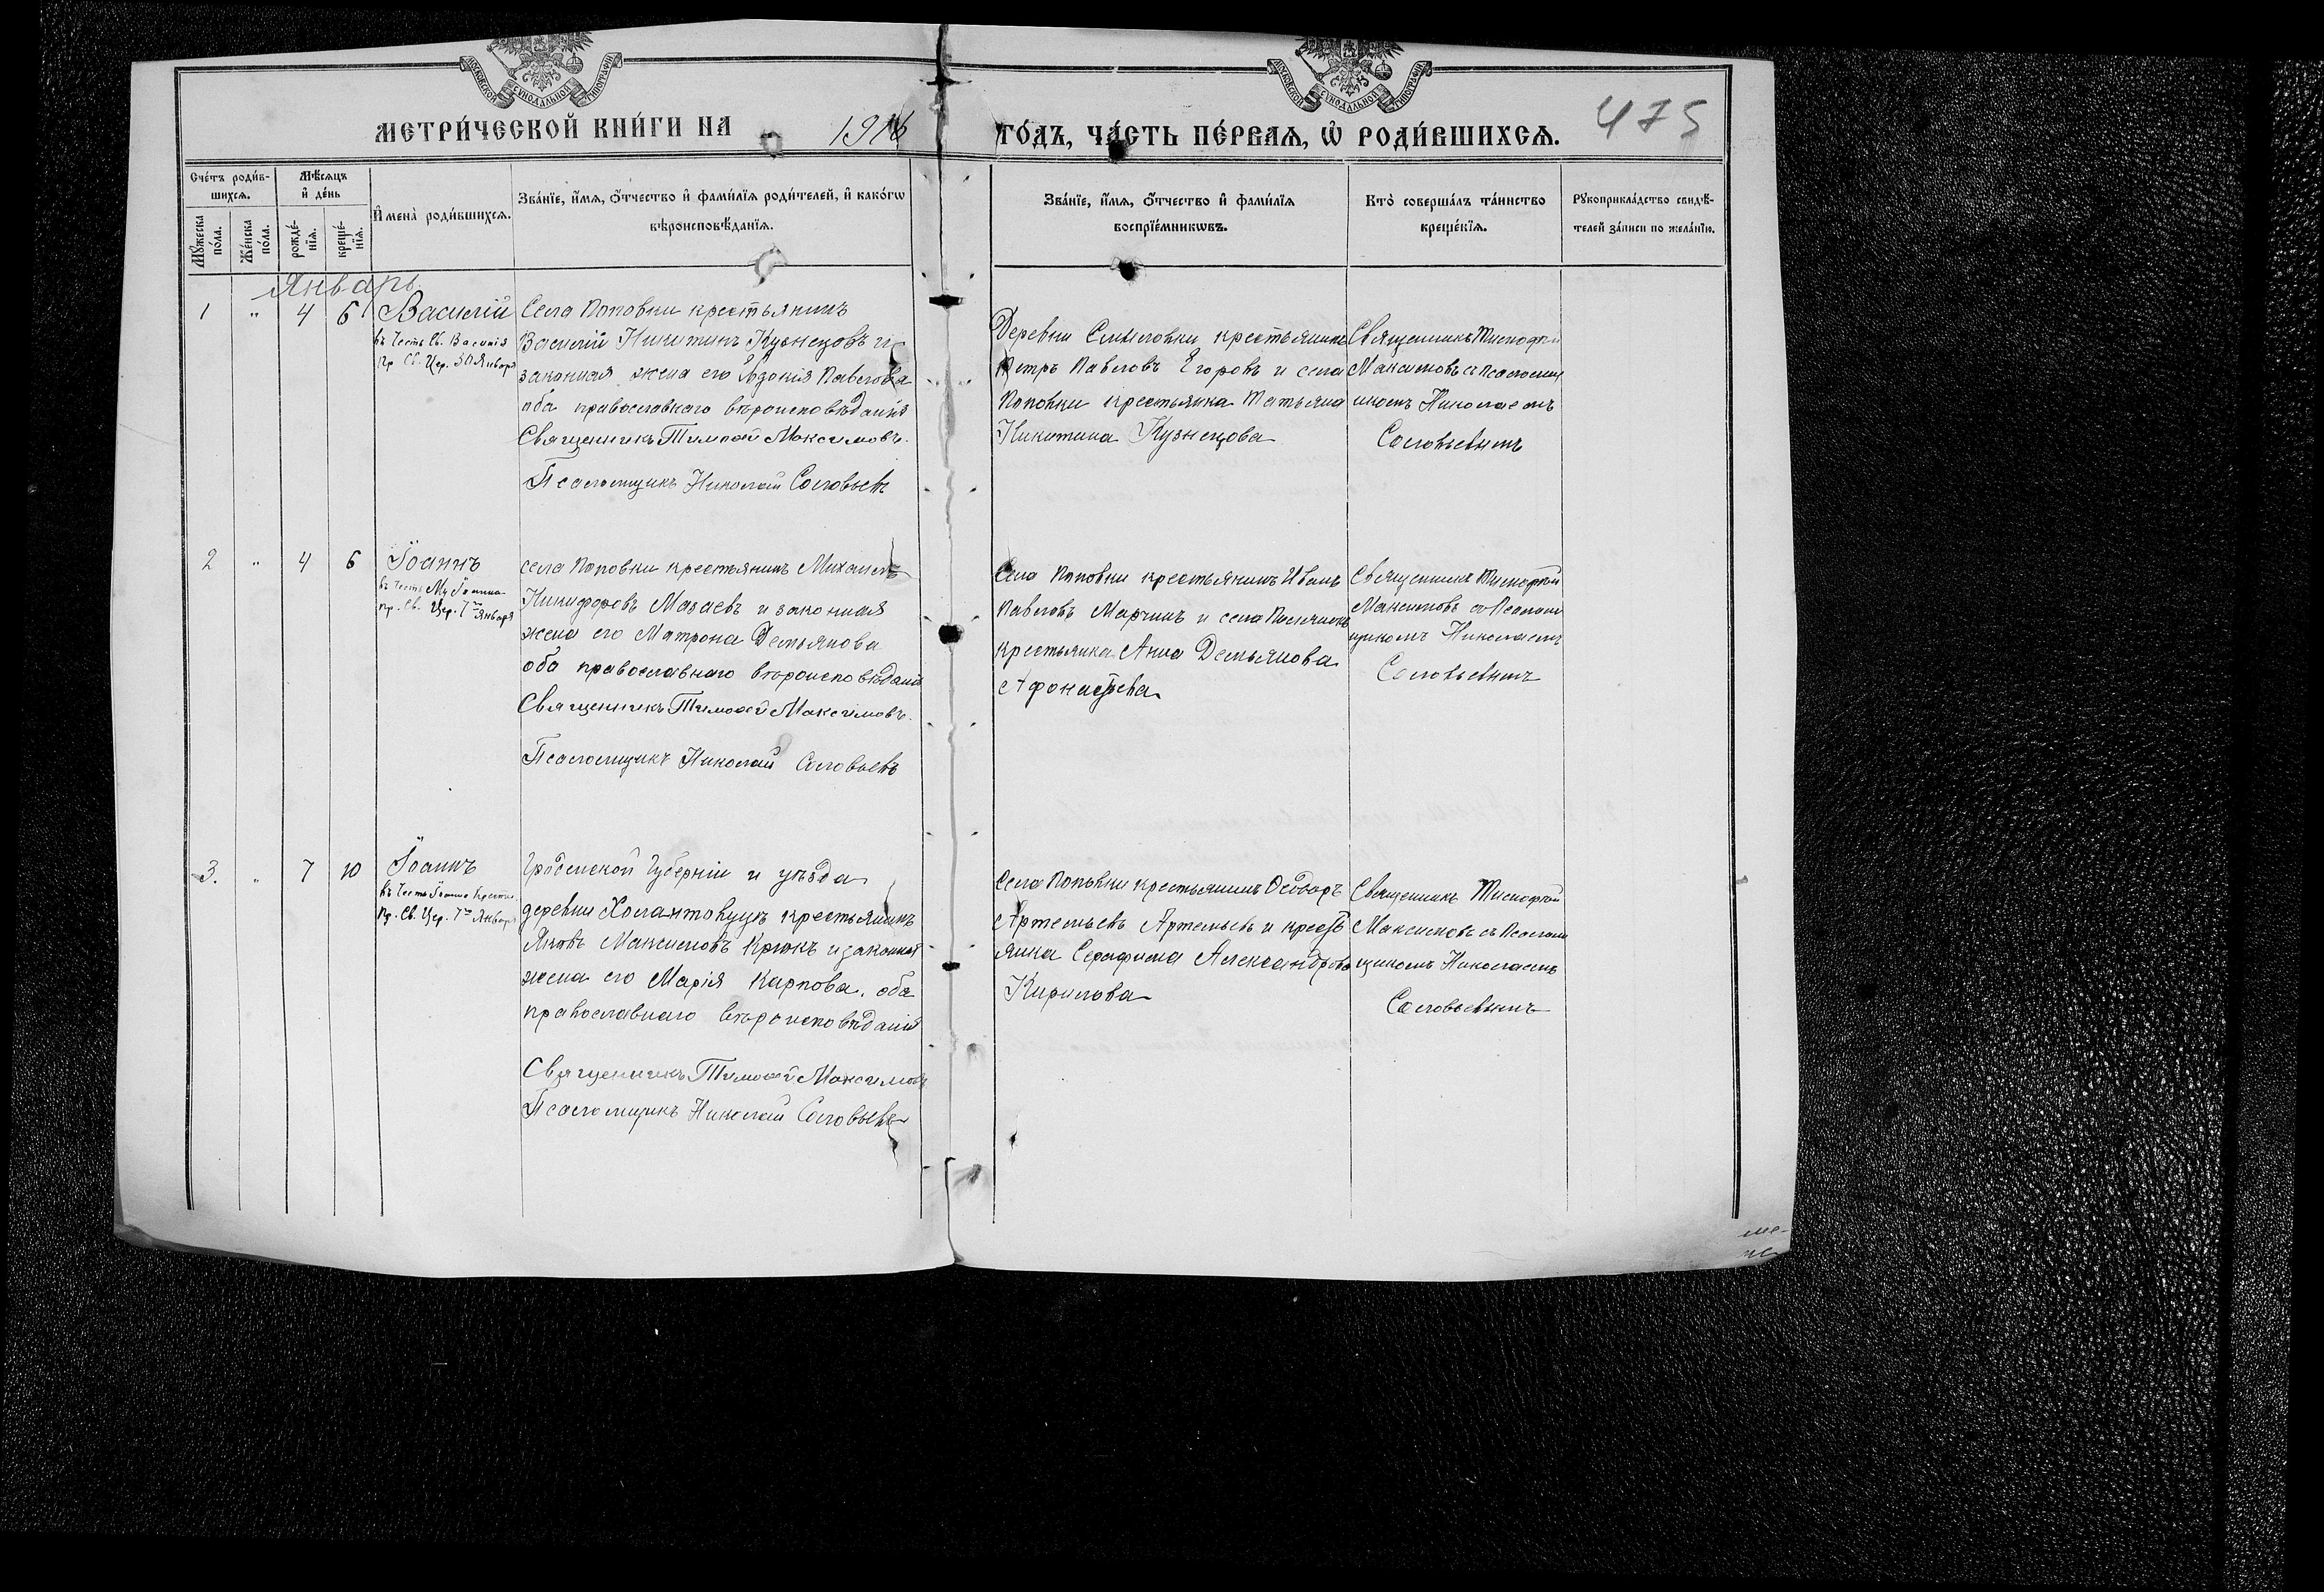 МОСКОВСКОЙ СѴНОДАЛЬНОЙ ТИПОГРАФІИ
МОСКОВСКОЙ СѴНОДАЛЬНОЙ ТИПОГРАФІИ
МЕТРИ́ЧЕСКОЙ КНИ́ГИ НА 1916
ГО́ДЪ, ЧА́СТЬ ПЕ́РВАѦ, Ѿ РОДИ́ВШИХСѦ.
475
Сче́тъ роди́в-
шихсѧ.
Мꙋ́жеска по́ла.
Же́нска по́ла.
Мѣ́сѧцъ
и҆ де́нь
рожде́-
нїѧ.
креще́-
нїѧ.
И҆мена̀ роди́вшихсѧ.
Зва́нїе, и҆́мѧ, ѻ҆́тчество и҆ фами́лїѧ роди́телей, и҆ како́гѡ
вѣроисповѣ́данїѧ.
Зва́нїе, и҆́мѧ, ѻ҆́тчество и҆ фами́лїѧ
воспрїе́мникѡвъ.
Кто̀ соверша́лъ та́инство
креще́нїѧ.
Рꙋкоприкла́дство свидѣ́-
телей за́писи по жела́нїю.
Январь
1 " 4 6 Василій
въ честь Св. Василія
пр. Св. Цер. 30 Января
Села Поповки крестьянинъ
Василій Никитинъ Кузнецовъ и
законная жена его Евдокія Павлова
оба православнаго вѣроисповѣданія
Священникъ Тимоѳей Максимовъ.
Псаломщикъ Николай Соловьевъ
Деревни крестьянинъ
Петръ Павловъ Егоровъ и села
Поповки крестьянка Татьяна
Никитина Кузнецова
Священникъ Тимофей
Максимовъ съ Псаломщ
икомъ Николаемъ
Соловьевымъ
2 " 4 6 Іоаннъ
въ честь Іоанна
пр. Св. Цер. 7го Января
села Поповки крестьянинъ Михаилъ
Никифоровъ Мазаевъ и законная
жена его Матрона Демьянова
оба православнаго вѣроисповѣданія
Священникъ Тимоѳей Максимовъ.
Псаломщикъ Николай Соловьевъ
Села Поповки крестьянинъ Иванъ
Павловъ Марчинъ и села
крестьянка Анна Демьянова
Афонасьева
Священникъ Тимофей
Максимовъ съ Псалом
щикомъ Николаемъ
Соловьевымъ
3. " 7 10 Іоаннъ
въ честь Іоанна Крестит.
Пр. Св. Цер. 7го Января
Гродненской Губерніи и уѣзда
деревни крестьянинъ
Яковъ Максимовъ Крюкъ и законная
жена его Марія Карпова. оба
православнаго вѣроисповѣданія
Священникъ Тимоѳей Максимовъ
Псаломщикъ Николай Соловьевъ
Села Поповки крестьянинъ Ѳеодоръ
Артемьевъ Артемьевъ и кресть
янка Серафима Александрова
Кирилова
Священникъ Тимофей
Максимовъ съ Псалом
щикомъ Николаемъ
Соловьевымъ